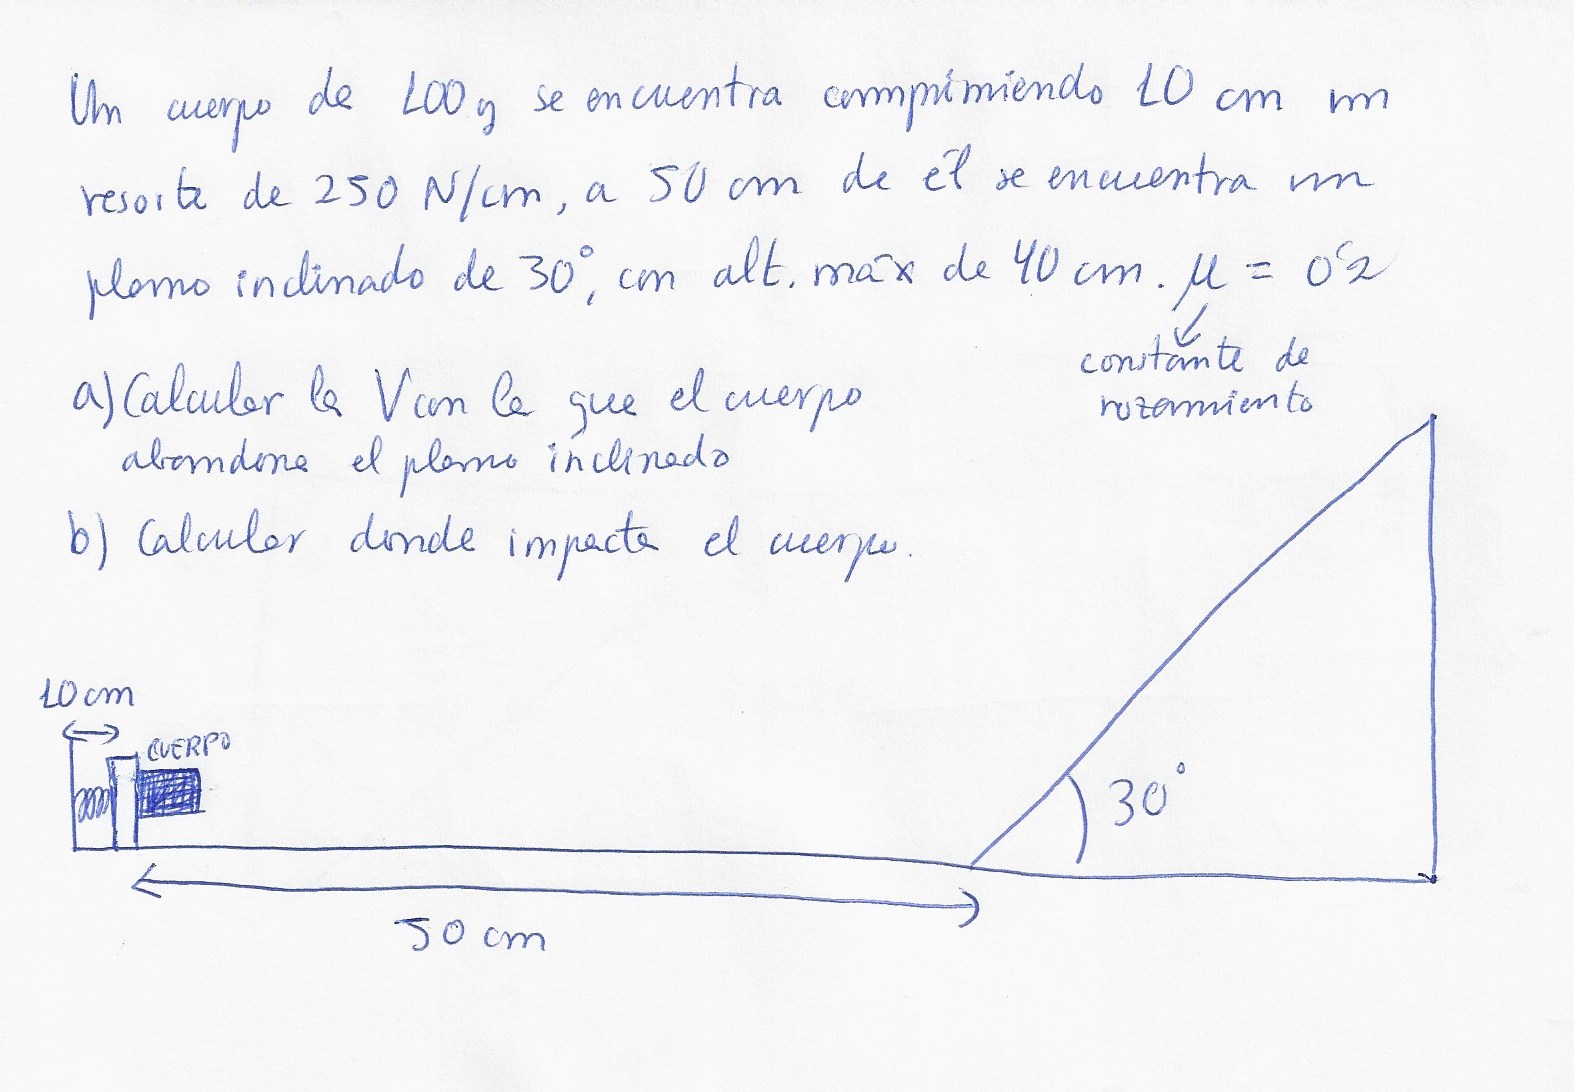 Un cuerpo de 100 g se encuentra comprimiendo 10 cm un
resorte de 250 N/cm, a 50 cm de él se encuentra un
plano inclinado de 30°, con alt. máx de 40 cm. μ = 0'2
constante de
rozamiento
a) Calcular la V con la que el cuerpo
abandona el plano inclinado
b) Calcular donde impacta el cuerpo.
10 cm
CUERPO
30°
50 cm